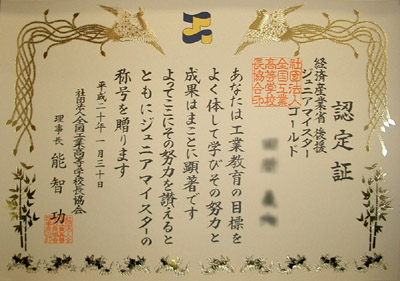 認定証
経済産業省後援
ジュニアマイスター
ゴールド
社団法人
全国工業
高等学校
長協会印
あなたは工業教育の目標を
よく体して学びその努力と
成果はまことに顕著です
よってここにその努力を讃えると
ともにジュニアマイスターの
称号を贈ります
平成二十年一月三十日
社団法人全国工業高等学校長協会
理事長 能智功